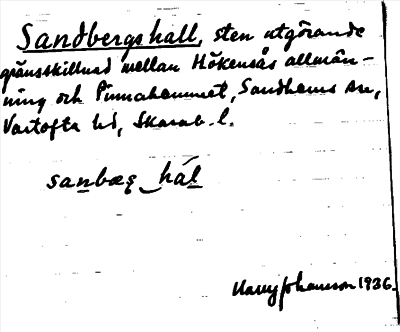 Sandbergs hall, sten utgörande
gränsskillnad mellan Hökensås allmän-
ning och Pinnahemmet, Sandhems sn,
Vartofta hd, Skarab. l.
sanbæg hál
Harry Johansson 1936.